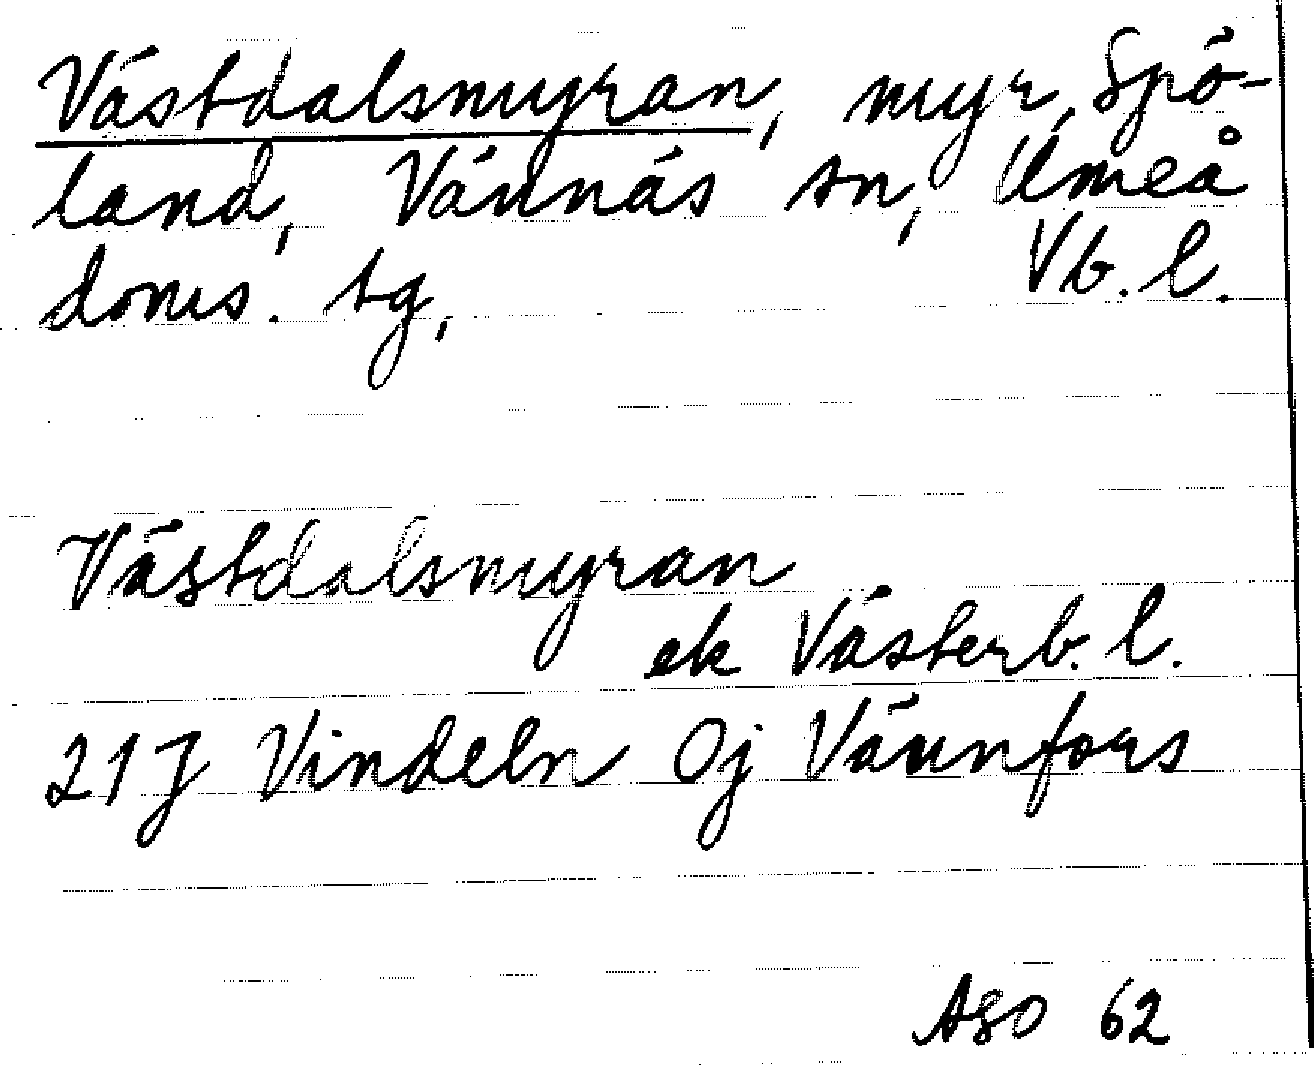 Västdalsmyran, myr, Spö-
land, Vännäs sn, Umeå
doms. tg, Vb. l.
Västdalsmyran
ek Västerb. l.
21J Vindeln 0j Vännfors
ASO 62